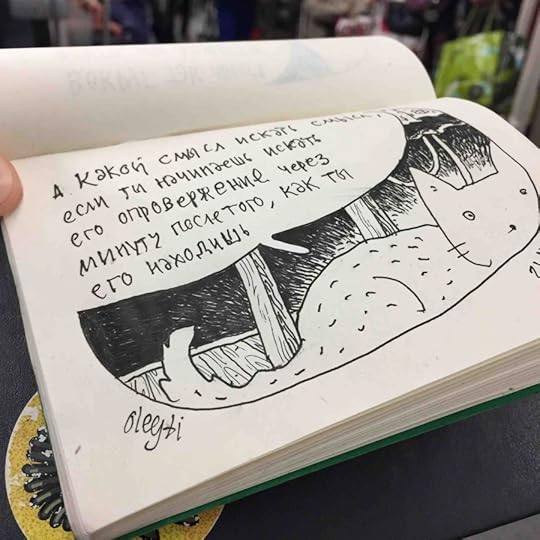 А. Какой смысл искать смысл,
если ты начинаешь искать
его опровержение через
минуту послетого, как ты
его находишь
olegti